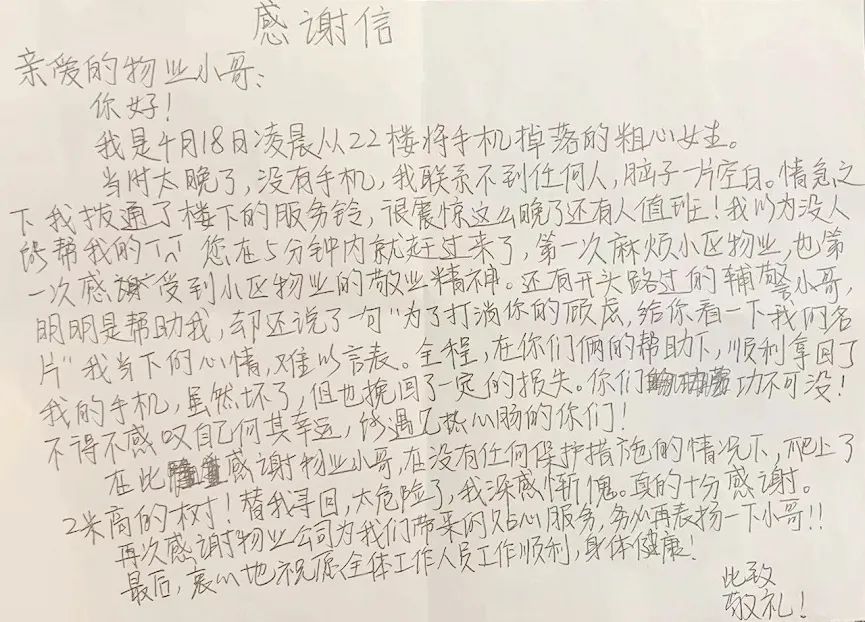 感谢信
亲爱的物业小哥：
你好！
我是4月18日凌晨从22楼将手机掉落的粗心女生。
当时太晚了，没有手机，我联系不到任何人，脑子一片空白。情急之
下我拨通了楼下的服务铃，很震惊这么晚了还有人值班！我以为没人
能帮我的TT 您在5分钟内就赶过来了，第一次麻烦小区物业，也第
一次感受到小区物业的敬业精神。还有开头路过的辅警小哥，
明明是帮助我，却还说了一句"为了打消你的顾虑，给你看一下我的名
片"我当下的心情，难以言表。全程，在你们俩的帮助下，顺利拿回了
我的手机，虽然坏了，但也挽回了一定的损失。你们功不可没！
不得不感叹自己何其幸运，能遇见热心肠的你们！
在此感谢物业小哥，在没有任何保护措施的情况下，爬上了
2米高的树！替我寻回，太危险了，我深感惭愧。真的十分感谢。
再次感谢物业公司为我们带来的贴心服务，务必再表扬一下小哥！！
最后，衷心地祝愿全体工作人员工作顺利，身体健康！
此致
敬礼！